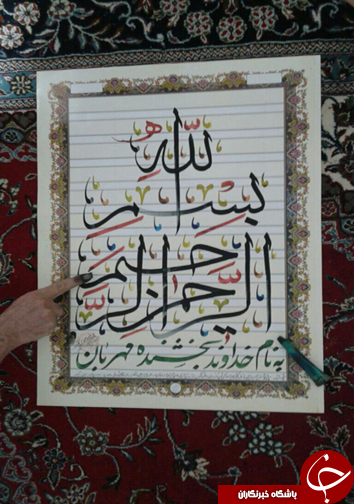 بسم الله
الرحمن الرحیم
به نام خداوند بخشنده مهربان
باشگاه خبرنگاران